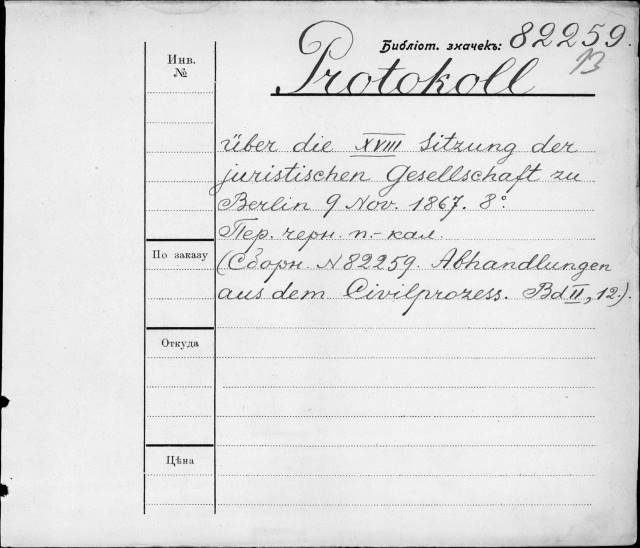 Библіот. значекъ: 82259.
13
Protokoll
Инв.
№
über die XVIII Sitzung der
juristischen Gesellschaft zu
Berlin 9 Nov. 1867. 8°.
Пер. черн. п.-кал.
По заказу
(Сборн. N 82259. Abhandlungen
aus dem Civilprozess. Bd II, 12.).
Откуда
Цѣна